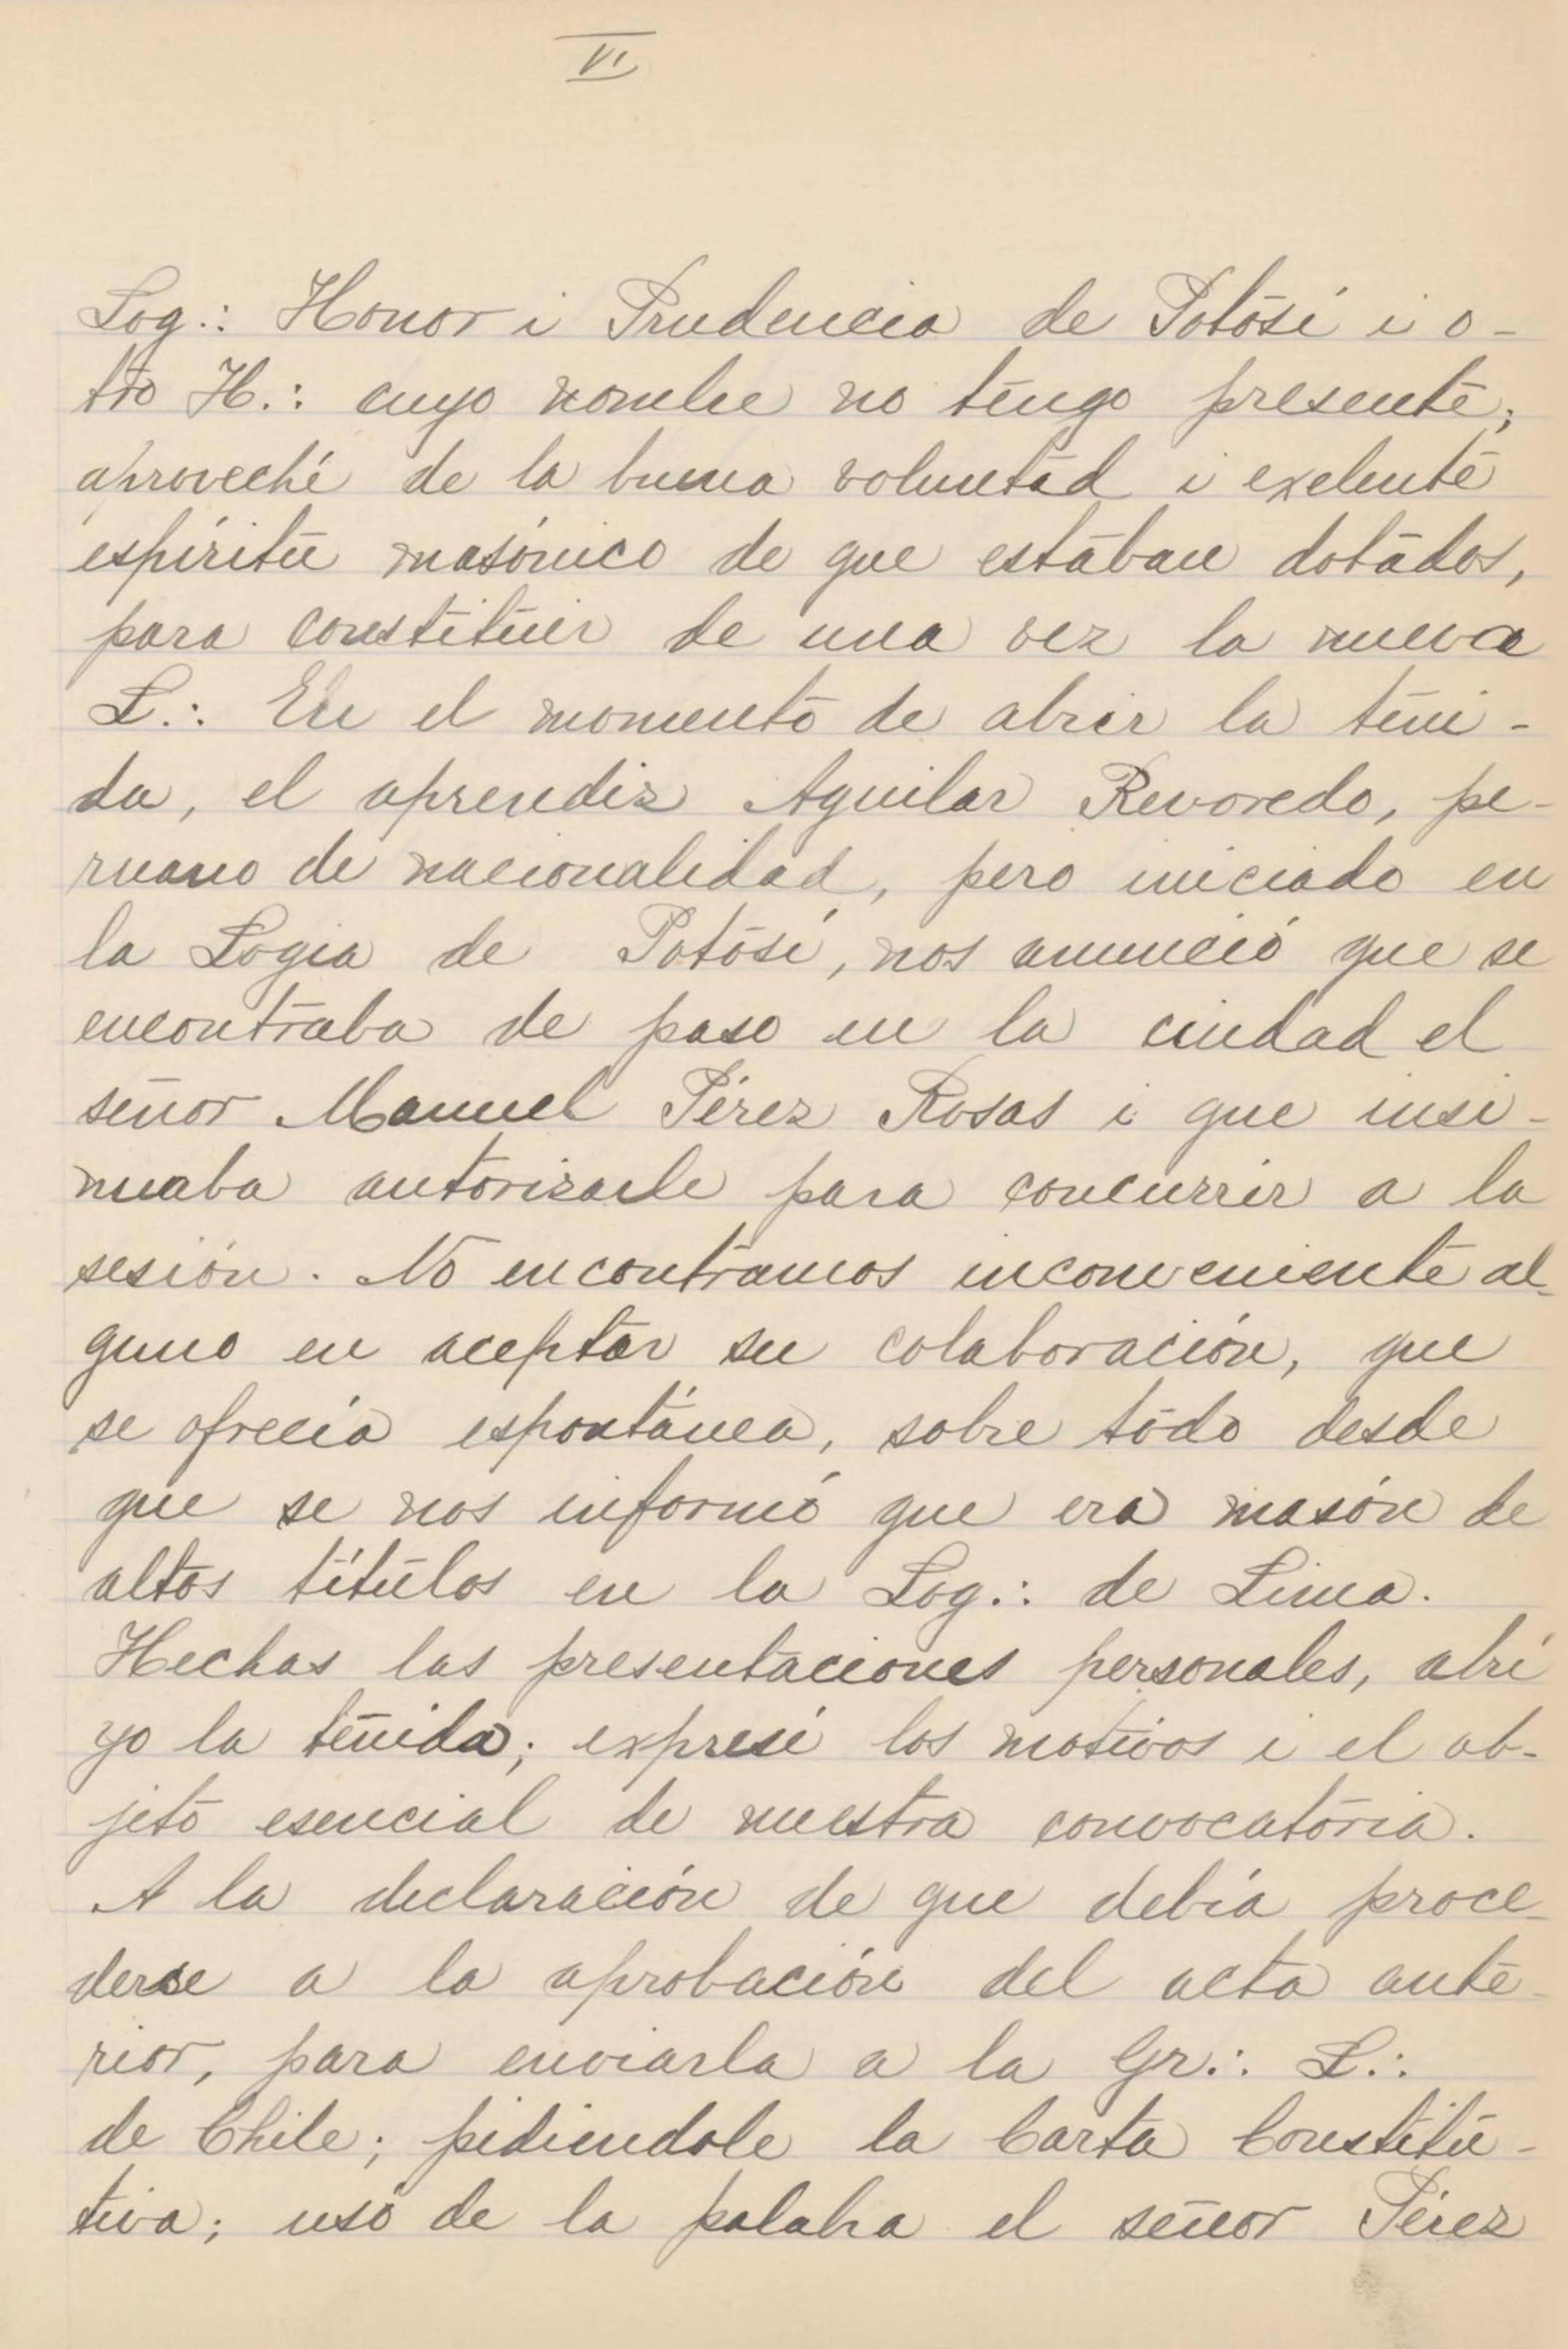 VI
Log.: Honor i Prudencia de Potosí i o-
tro H.: cuyo nombre no tengo presente;
aproveché de la buena voluntad i exelente
espíritu masónico de que estaban dotados,
para constituir de una vez la nueva
L.: En el momento de abrir la teni-
da, el aprendiz Aguilar Revoredo, pe-
ruano de nacionalidad, pero iniciado en
la Logia de Potosí, nos anunció que se
encontraba de paso en la ciudad el
señor Manuel Pérez Rosas i que insi-
nuaba autorizarle para concurrir a la
sesión. No encontramos inconveniente al-
guno en aceptar su colaboración, que
se ofrecía espontánea, sobre todo desde
que se nos informó que era masón de
altos títulos en la Log.: de Lima.
Hechas las presentaciones personales, abrí
yo la tenida; expresé los motivos i el ob-
jeto esencial de nuestra convocatoria.
A la declaración de que debía proce-
derse a la aprobación del acta ante-
rior, para enviarla a la Gr.: L.:
de Chile; pidiendole la Carta Constitu-
tiva; usó de la palabra el señor Pérez